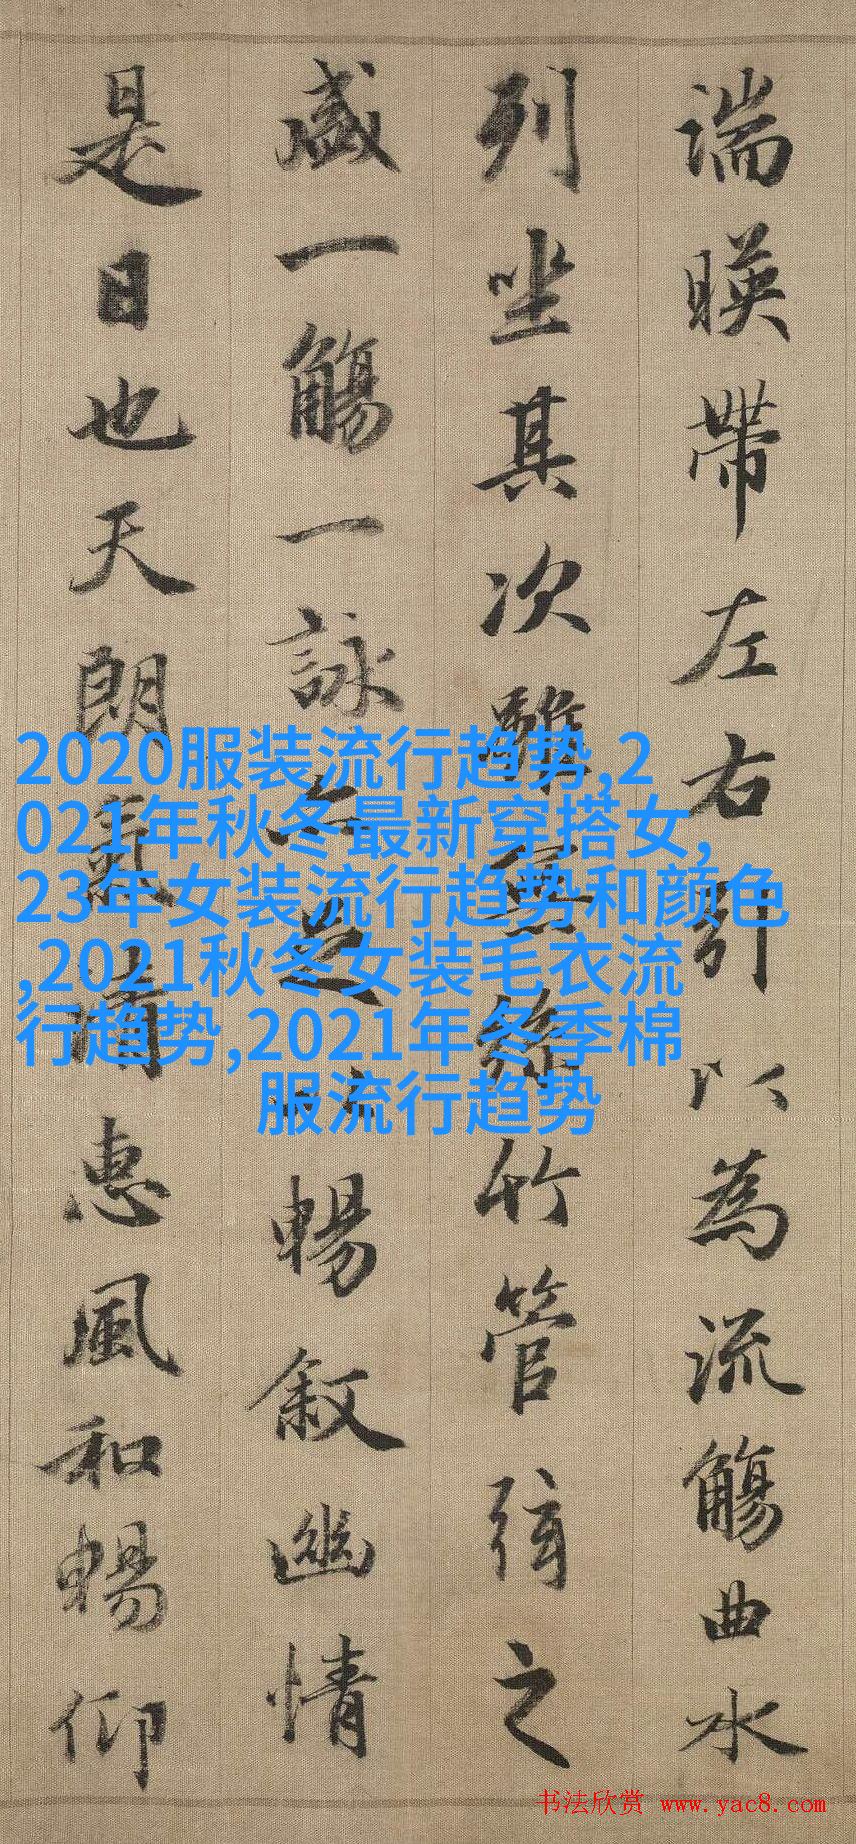 湍暎帶左右引以為流觴曲水
列坐其次雖無絲竹管弦之
盛一觴一詠亦足以暢叙幽情
是日也天朗氣清惠風和暢仰
2020服装流行趋势,2
021年秋冬最新穿搭女,
23年女装流行趋势和颜色
,2021秋冬女装毛衣流
行趋势,2021年冬季棉
服流行趋势
书法欣赏 www.yac8.com